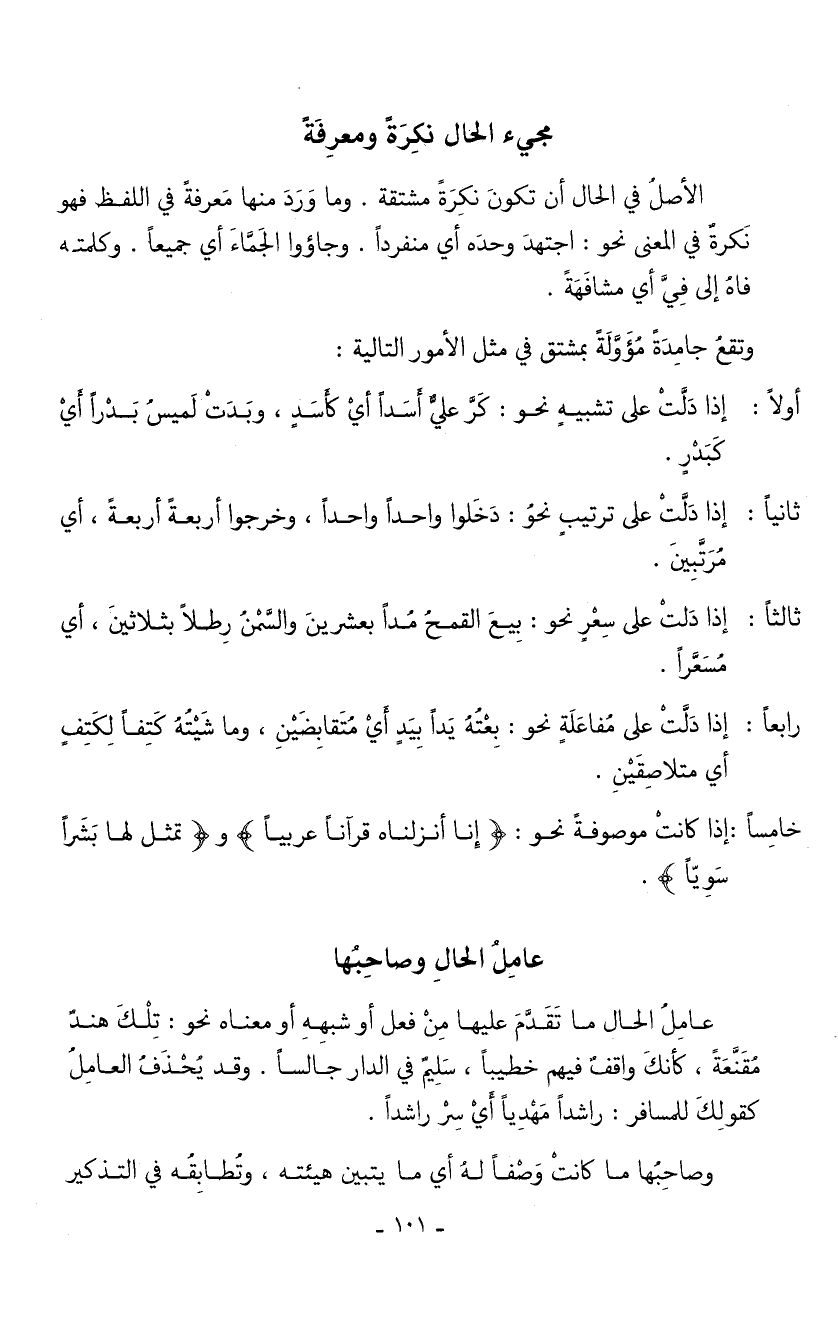 مجيء الحال نكِرَةً ومعرِفَةً
الأصلُ في الحال أن تكونَ نكرَةً مشتقة . وما وَرَدَ منها مَعرفةً في اللفـظ فهو
نَكرةٌ في المعنى نحو : اجتهدَ وحدَه أي منفرداً . وجاؤوا الجَمَّاءَ أي جميعاً . وكلمتـه
فاهُ إلى فِيَّ أي مشافَهَةً .
وتقعُ جامِدَةً مُؤَوَّلَةً بمشتق في مثل الأمور التالية :
أولاً : إذا دَلَّتْ على تشبيـهٍ نحـو : كَرَّ عليٌّ أَسَداً أيْ كَأَسَدٍ ، وبَـدَتْ لَميسُ بَـدْراً أَيْ
كَبَدْرٍ .
ثانياً : إذا دَلَّتْ على ترتيبٍ نحوُ : دَخَلوا واحـداً واحـداً ، وخرجوا أربعـةً أربعـة ، أي
مُرَتَّبِينَ .
ثالثاً : إذا دَلتْ على سِعْرٍ نحو : بِيـعَ القمـحُ مُـداً بعشـرينَ والسَّمْنُ رِطـلاً بثـلاثينَ ، أي
مُسَعَّراً .
رابعاً : إذا دَلَّتْ على مُفاعَلَةٍ نحو : بِعْتُهُ يَداً بِيَدٍ أَيْ مُتَقابِضَيْنِ ، وما شَيْتُهُ كَتِفـاً لِكَتِفٍ
أي متلاصِقَيْنِ .
خامِساً :إذا كانتْ موصوفـةً نحـو : ﴿ إنـا أنـزلنـاه قرآنـاً عربيـاً ﴾ و ﴿ تمثـل لهـا بَشَراً
سَوِيّاً ﴾ .
عامِلُ الحالِ وصاحِبُها
عـامِلُ الحـال مـا تَقَدَّمَ عليهـا مِنْ فعل أو شبهـهِ أو معنـاه نحو : تِلْـكَ هنـدٌ
مُقَنَّعَةً ، كأنكَ واقفٌ فيهم خطيباً ، سَلِيمٌ في الدار جـالسـاً . وقـد يُحْـذَفُ العـامِلُ
كقولِكَ للمسافر : راشداً مَهْدِياً أَيْ سِرْ راشداً .
وصاحِبُها مـا كانتْ وَصْفـاً لـهُ أي مـا يتبين هيئتـه ، وتُطـابِقُـه في التـذكير
- ١٠١ -